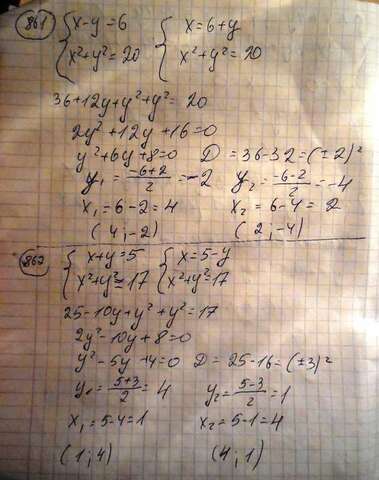 861 { x-y=6 { x=6+y
x²+y²=20 x²+y²=20
36+12y+y²+y²=20
2y²+12y+16=0
y²+6y+8=0 D=36-32=(±2)²
y₁=(-6+2)/2=-2 y₂=(-6-2)/2=-4
x₁=6-2=4 x₂=6-4=2
(4;-2) (2;-4)
862 { x+y=5 { x=5-y
x²+y²=17 x²+y²=17
25-10y+y²+y²=17
2y²-10y+8=0
y²-5y+4=0 D=25-16=(±3)²
y₁=(5+3)/2=4 y₂=(5-3)/2=1
x₁=5-4=1 x₂=5-1=4
(1;4) (4;1)